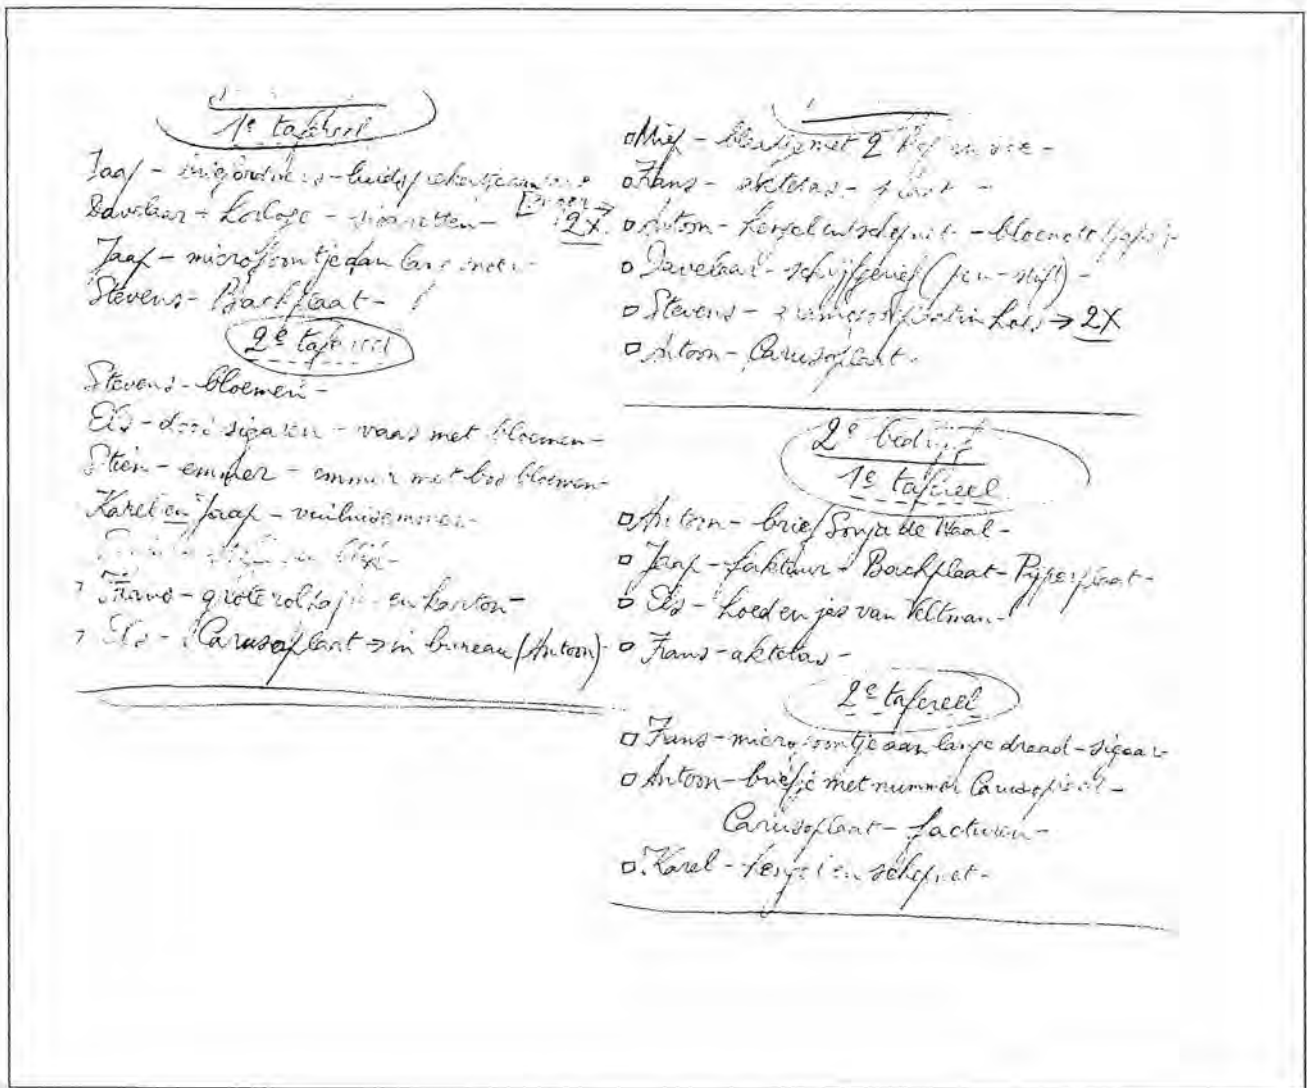 1e tafereel
Jaap -
Davelaar - horloge - sigaretten -
2X
Jaap - microfoontje aan
Stevens - Bachplaat - !
2e tafereel
Stevens - bloemen -
Els - doos sigaren - vaas met bloemen -
Stien - emmer - emmer met bos bloemen -
Karel en Jaap - vuilnisemmer -
Frans - grote rol en karton -
Els - Carusoplaat → in bureau (Antoon) -
Mief - met 2
Frans - aktetas -
Antoon - hengel en schepnet -
Davelaar - schrijfgerief (pen - stift) -
Stevens - → 2X
Antoon - Carusoplaat -
2e bedrijf
1e tafereel
Antoon - brief Sonja de Waal -
Jaap - faktuur - Bachplaat - Pijperplaat -
Els - hoed en jas van Veltman -
Frans - aktetas -
2e tafereel
Frans - microfoontje aan lange draad - sigaar
Antoon - briefje met nummer Carusoplaat -
Carusoplaat - facturen -
Karel - hengel en schepnet -